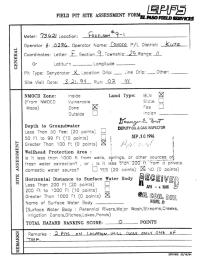 FIELD PIT SITE ASSESSMENT FORM
EL PASO FIELD SERVICES
GENERAL
Meter: 73621 Location:
Operator #: 0286 Operator Name: P/L District: KUTZ
Coordinates: Letter: F Section 9 Township: 29 Range: 11
Or Latitude Longitude
Pit Type: Dehydrator X Location Drip: Line Drip: Other:
Site Date: Run: 02
SITE ASSESSMENT
NMOCD Zone: Inside
(From NMOCD Vulnerable
Maps) Zone
Outside
Land Type: BLM
State
Fee
Indian
Depth to Groundwater
Less Than 50 Feet (20 points)
50 Ft to 99 Ft (10 points)
Greater Than 100 Ft (0 points)
DEPUTY OIL & GAS INSPECTOR
SEP 10 1996
Wellhead Protection Area :
Is it less than 1000 ft from wells, springs, or other sources of
fresh water extraction? , or is it less than 200 ft from a private
domestic water source? YES (20 points) NO (0 points)
Horizontal Distance to Surface Water Body
Less Than 200 Ft (20 points)
200 Ft to 1000 Ft (10 points)
Greater Than 1000 Ft (0 points)
Name of Surface Water Body
(Surface Water Body : Perennial Rivers,Major Wash,Streams,Creeks,
Irrigation Canals,Ditches,Lakes,Ponds)
RECEIVED
OIL CON. DIV.
TOTAL HAZARD RANKING SCORE: 0 POINTS
REMARKS
Remarks : 2 PITS ON LOCATION. WILL CLOSE ONLY ONE OF
THEM.